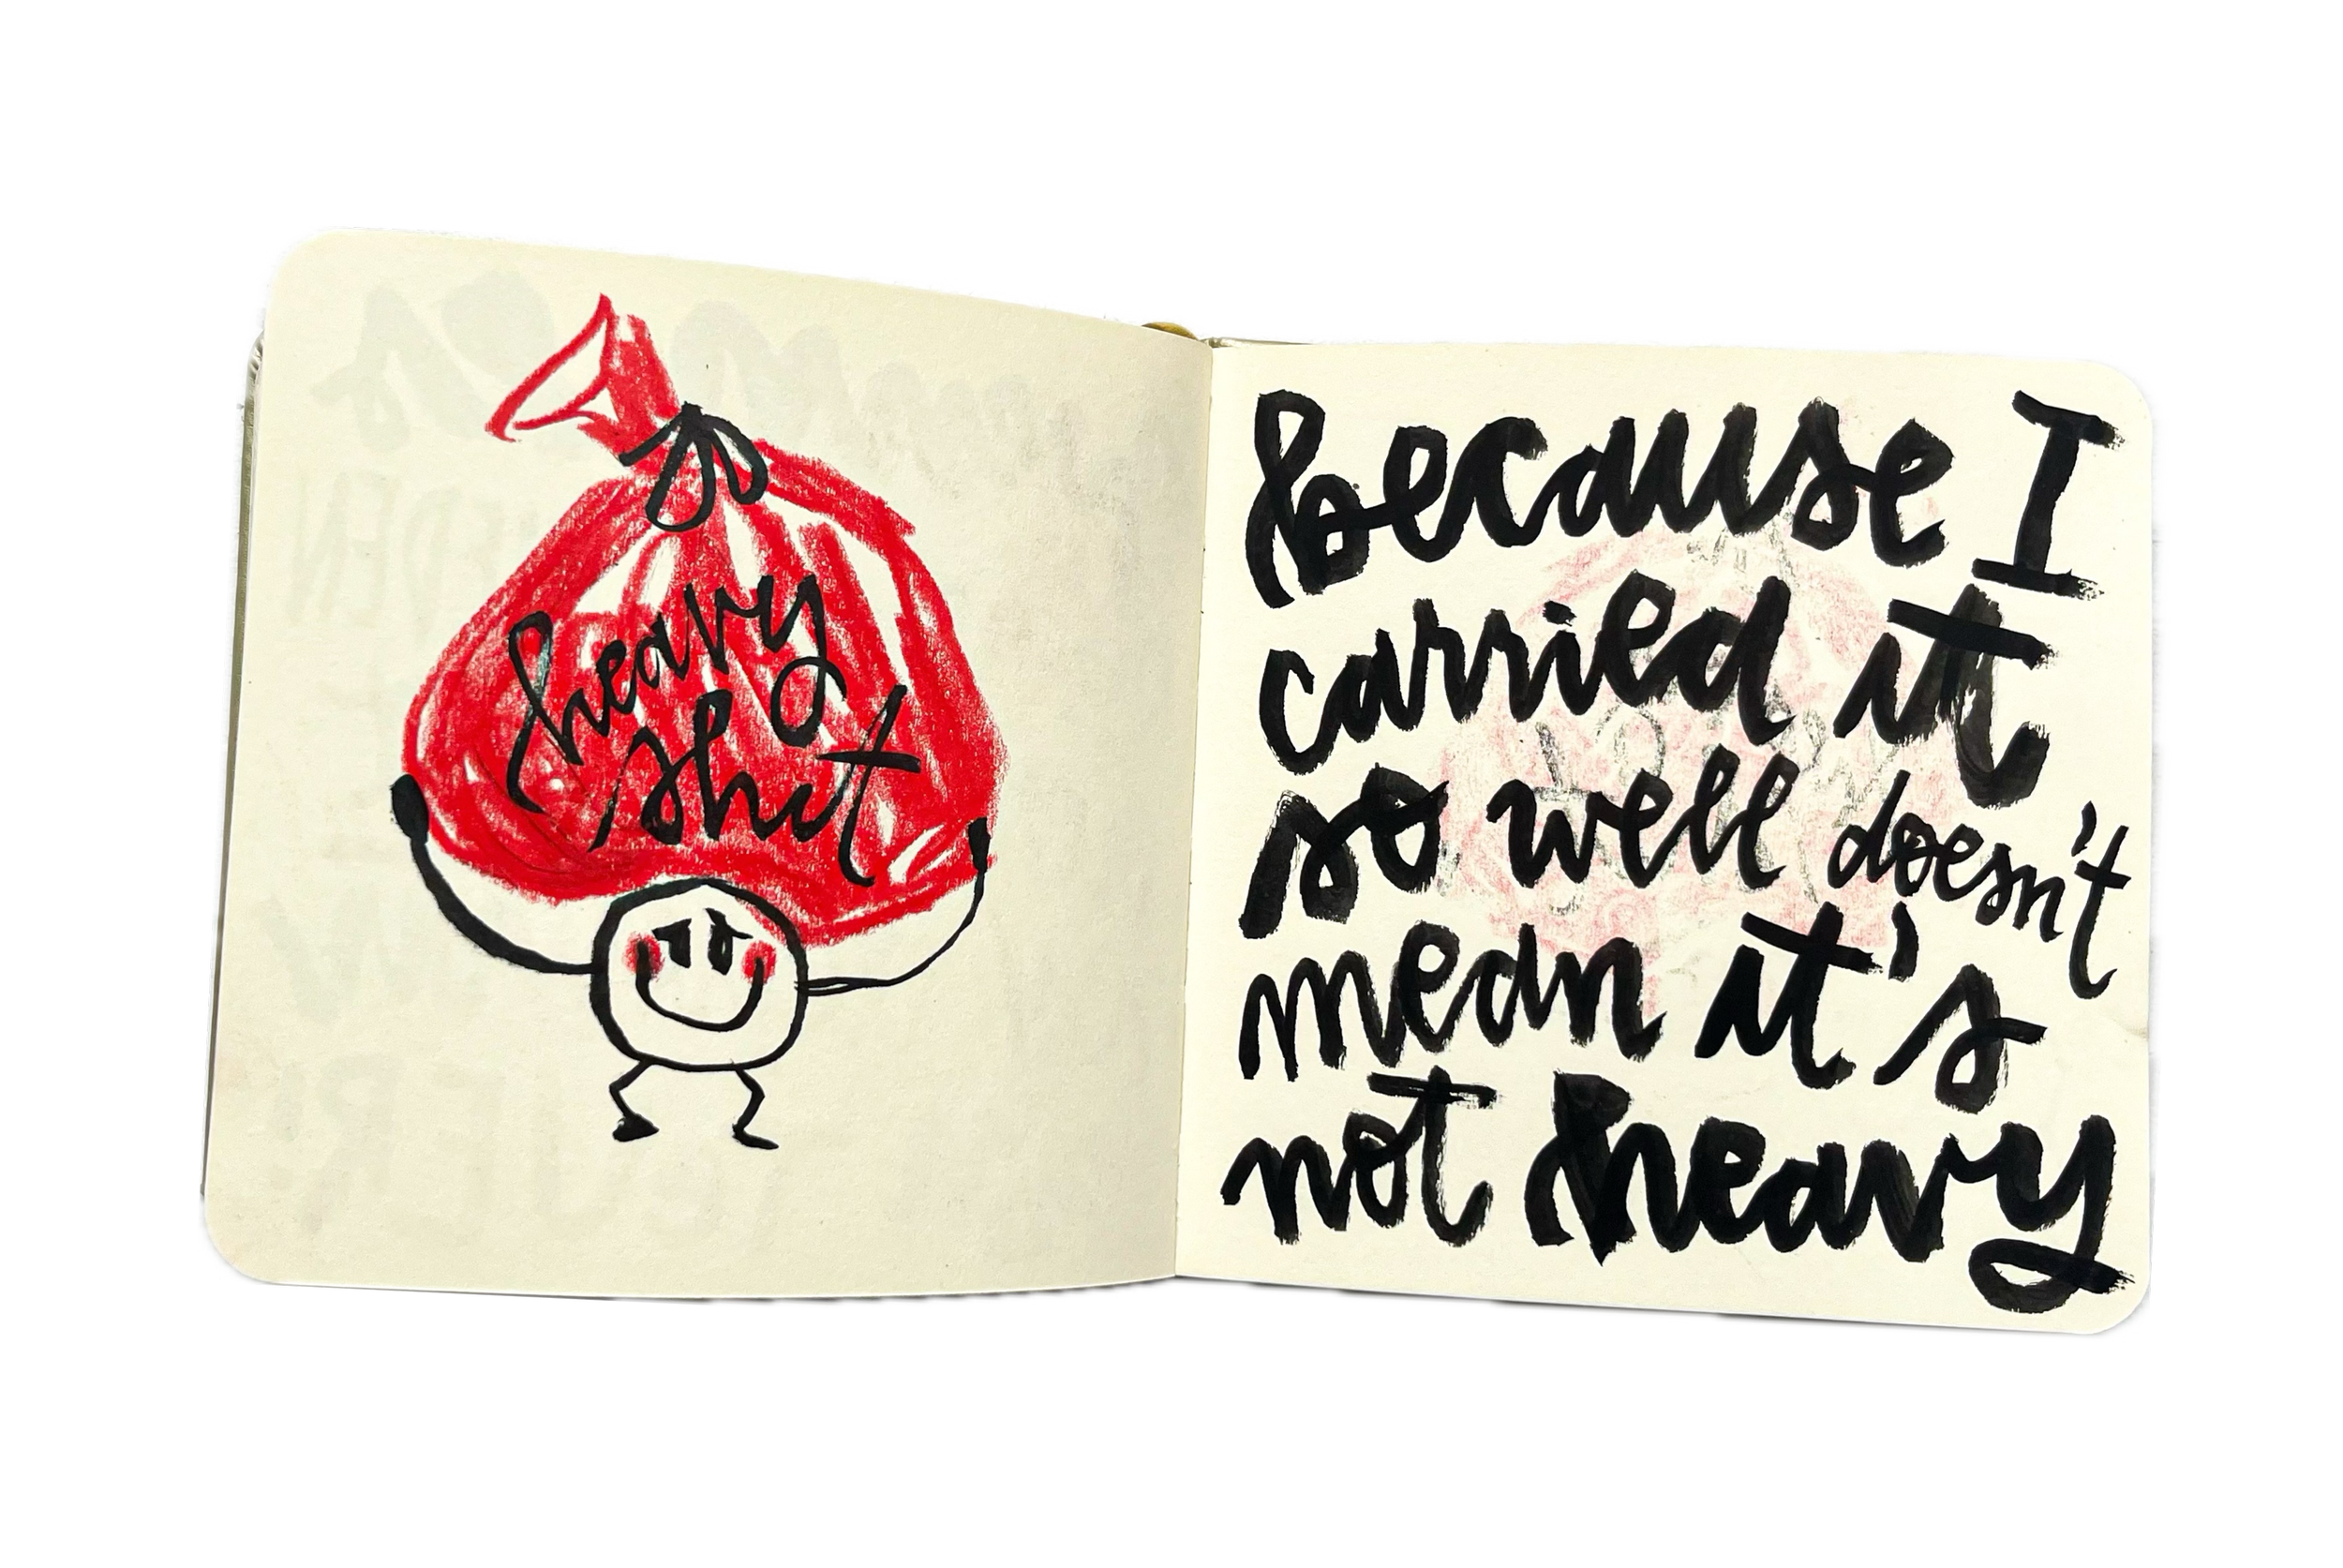 heavy
shit
because I
carried it
so well doesn't
mean it's
not heavy